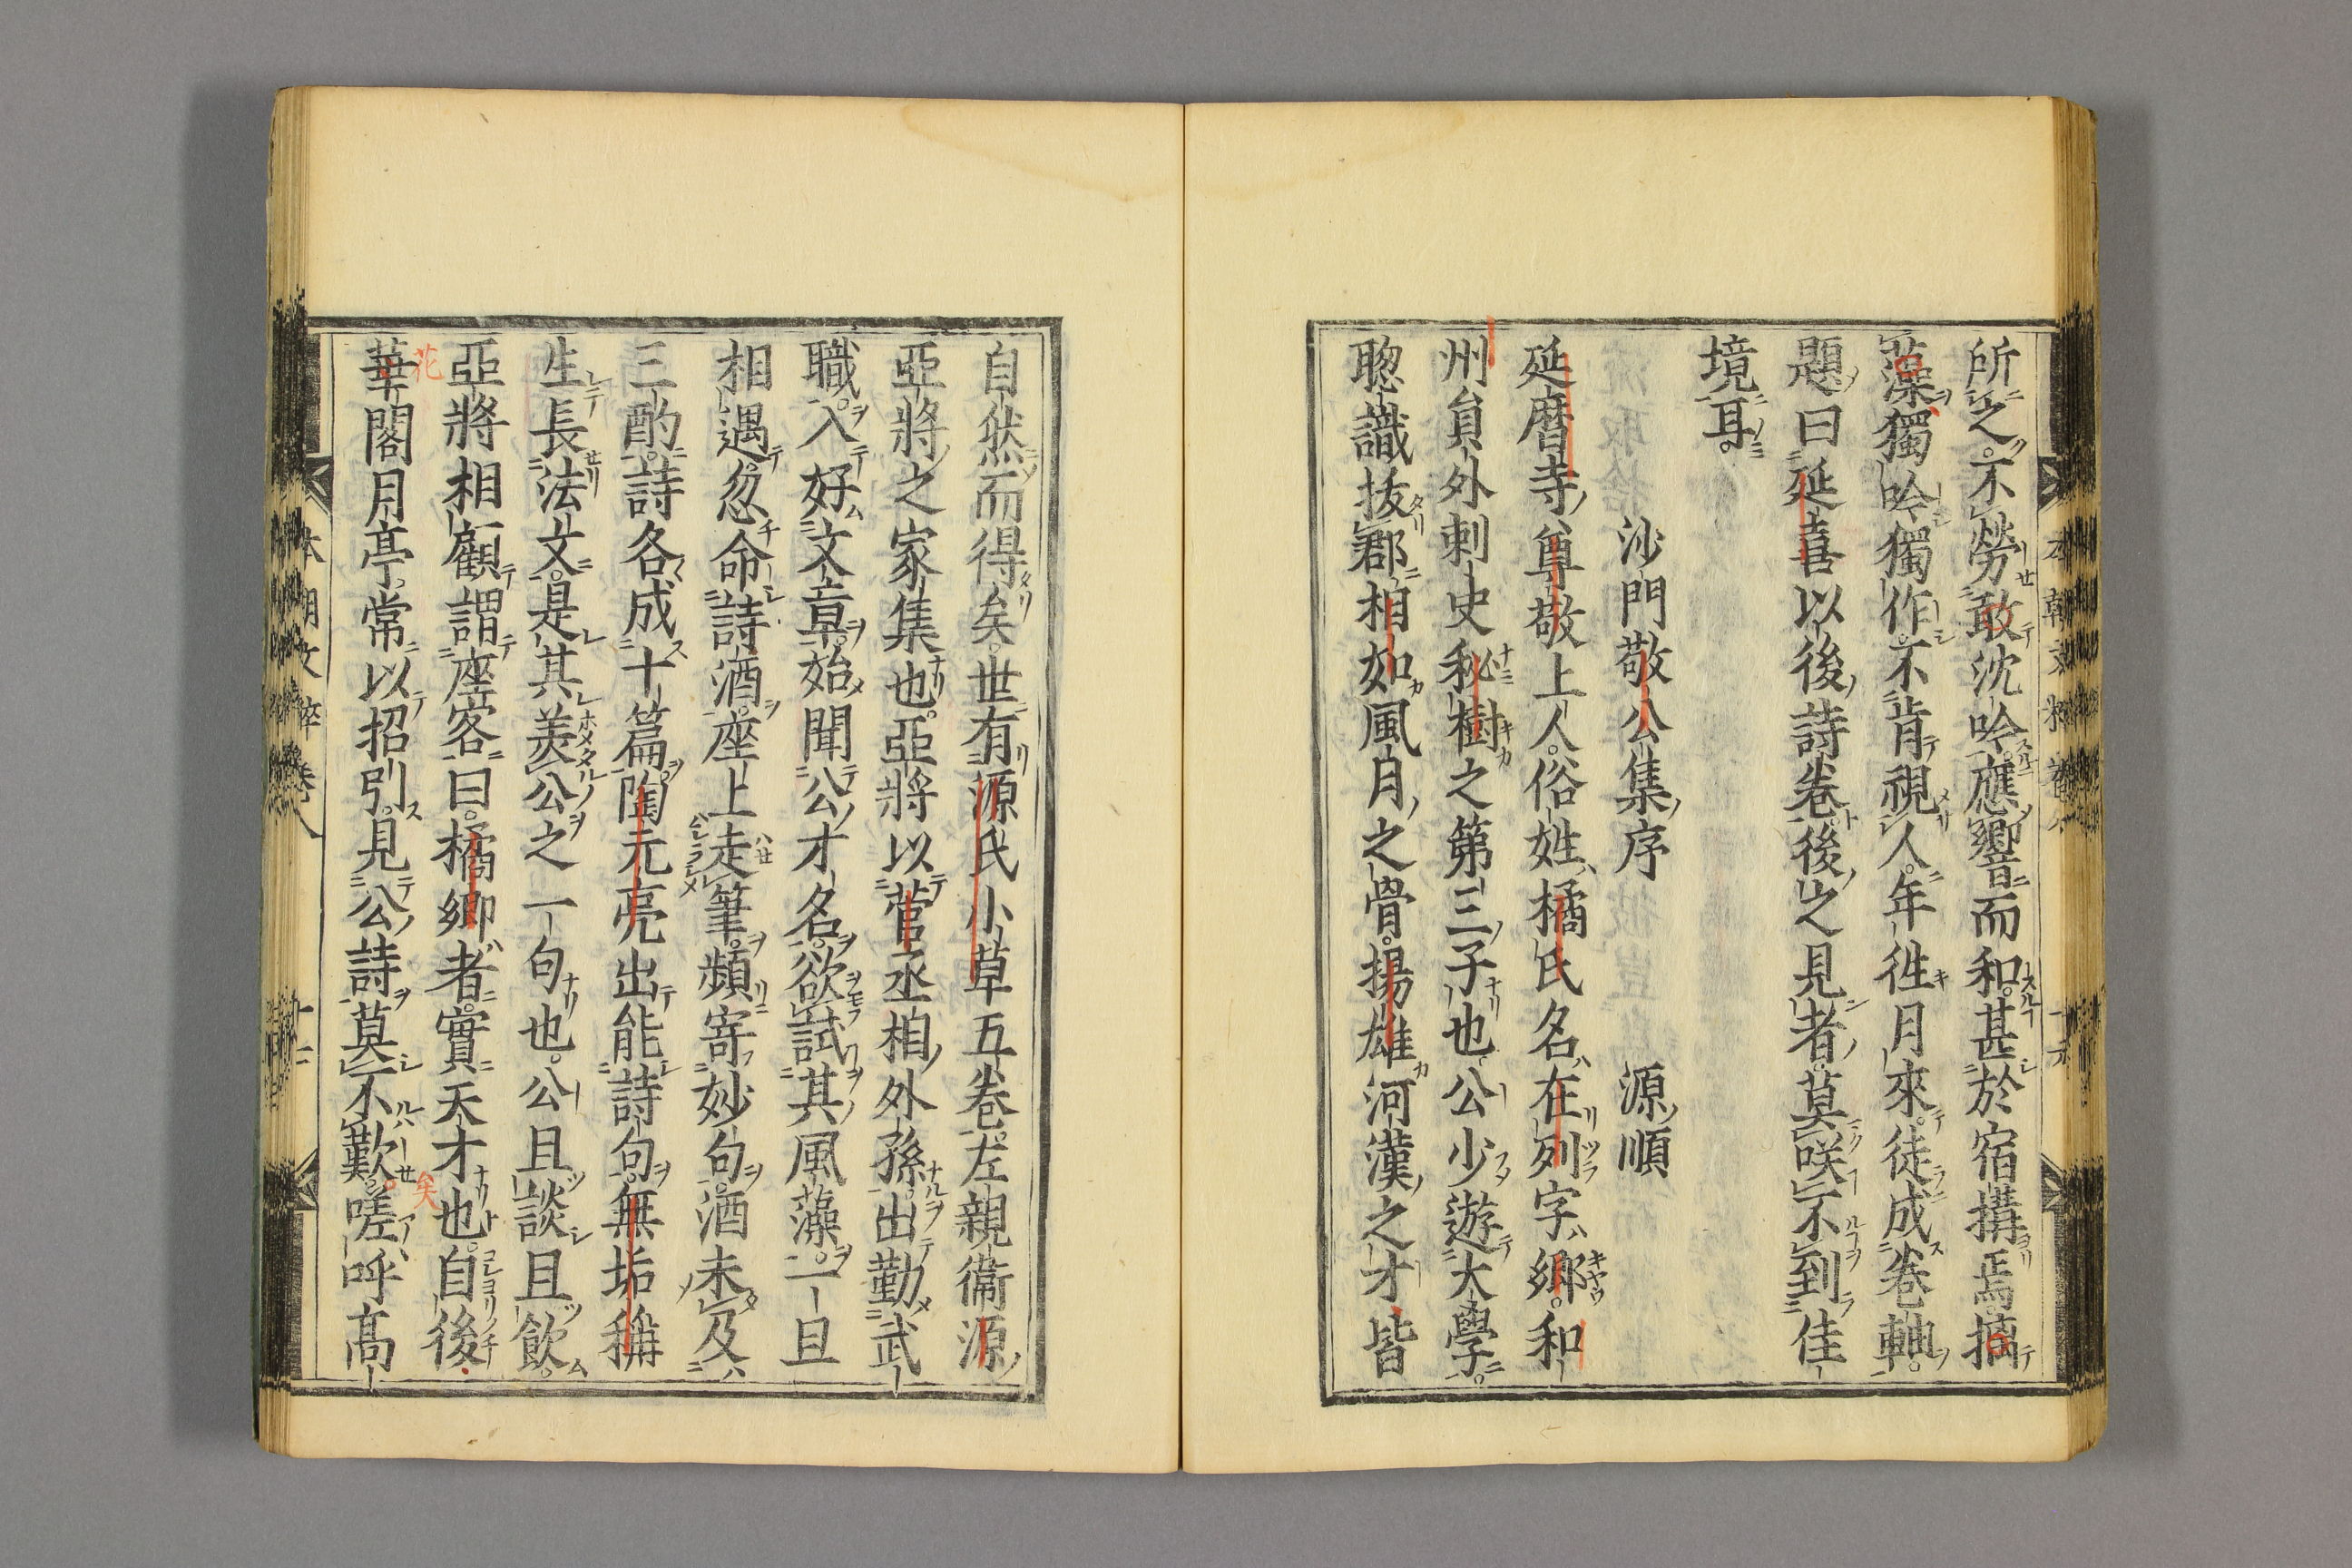 所之。不勞敢沈吟。應響而和。甚於宿搆焉。摛
藻獨吟獨作。不肯視人。年徃月來。徒成卷軸。
題曰延喜以後詩卷。後之見者。莫咲不到佳
境耳。
沙門敬公集序 源順
延曆寺尊敬上人。俗姓橘氏名在列字鄉。和
州員外刺史秘樹之第三子也。公少遊大學。
聦識拔郡。相如風月之骨。揚雄河漢之才。皆
自然而得矣。世有源氏小草五卷。左親衞源
亞將之家集也。亞將以菅丞相外孫。出勤武
職。入好文章。始聞公才名。欲試其風藻。一旦
相遇。忽命詩酒。座上走筆。頻寄妙句。酒未及
三酌。詩各成十篇。陶元亮出能詩句。無垢稱
生長法文。是其羨公之一句也。公且談且飲。
亞將相顧謂座客曰。橘卿者。實天才也。自後
華閣月亭。常以招引。見公詩莫不歎。嗟呼高
花
矣
本朝文粹卷八
十二